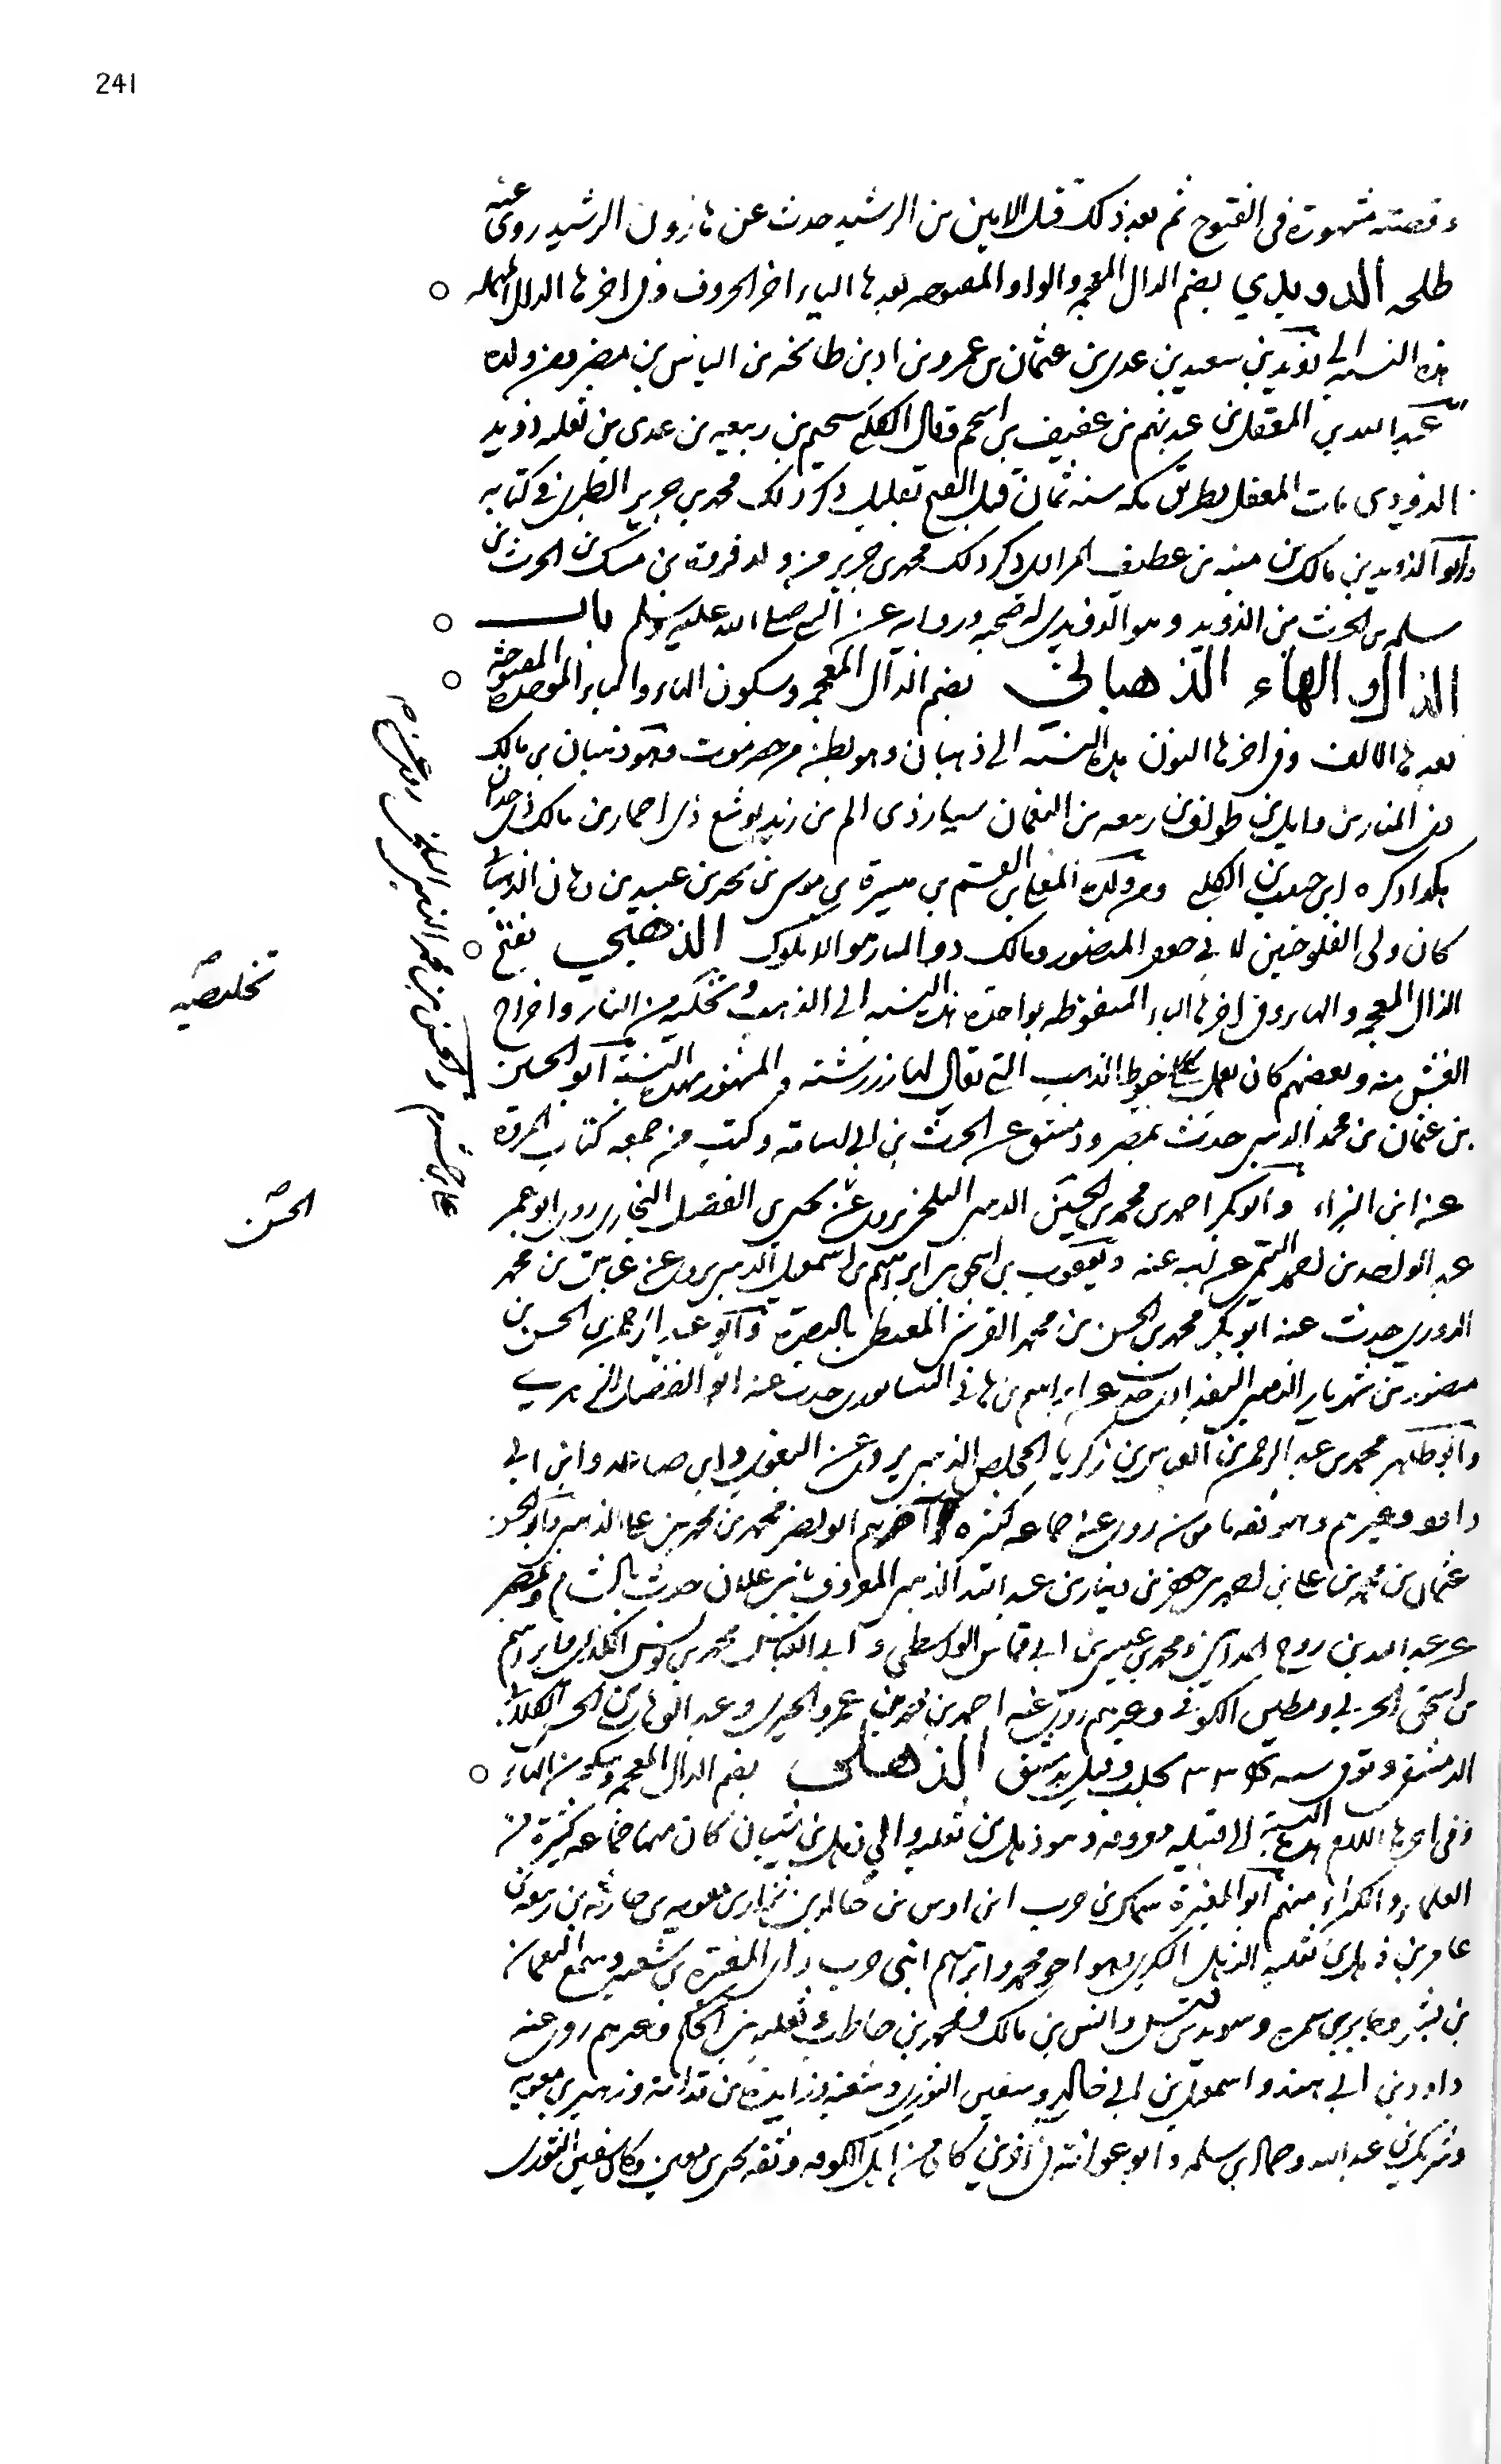 241
وقصته مشهورة في الفتوح ثم بعد ذلك قبل الامين بن الرشيد حدث عن هارون الرشيد روى عنه
طلحه الذويدي بضم الذال المعجمه والواو المفتوحه بعدها الياء اخر الحروف وفي اخرها الدال المهمله
هذه النسبه الى ذويد بن سعيد بن عدي بن عثمان بن عمرو بن اد بن طابخه بن الياس بن مضر ومن ولده
عبد الله بن المغفل بن عبد نهم بن عفيف بن اسحم وقال الكلبي سحيم بن ربيعه بن عدي بن ثعلبه ذويد
الذويدي مات المغفل بطريق مكه سنه ثمان قبل الفتح بقليل ذكر ذلك محمد بن جرير الطبري في كتابه
وابو الذويد بن مالك بن منبه بن غطيف المرادي ذكر ذلك محمد بن جرير من ولده فروة بن مسيك بن الحرث بن
سلمه بن الحرث بن الذويد وهو الذويدي له صحبه وروايه عن النبي صلى الله عليه وسلم باب
الذال والهاء الذهباني بضم الذال المعجمه وسكون الهاء والباء الموحده المفتوحة
بعدها الالف وفي اخرها النون هذه النسبه الى ذهبان وهو بطن من حضرموت وهو ذهبان بن مالك
ذي المنار بن وايل بن طولف بن ربيعه بن النعمان سيار ذي الم بن زيد يوشع ذي احمار بن مالك ذي جدن
هكذا ذكره ابن حبيب بن الكلبي ومن ولده المفلح بن القسم بن ميسرة بن موسى بن بحر بن عبيد بن هاني الذهباني
كان ولي الفلوجتين لابي جعفر المنصور ومالك ذو المنار هو الاملوك الذهبي بفتح
الذال المعجمه والهاء وفي اخرها الباء المنقوطه بواحدة هذه النسبه الى الذهب وتخليه من النار واخراج
الغش منه وبعضهم كان يعمل خيوط الذهب التي يقال لها زررشته والمشهور بهذه النسبة ابو الحسين
بن عثمان بن محمد الذهبي حدث بمصر ودمشق عن الحرث بن ابي اسامه وكتب من جمعه كتاب المروة
عن ابن البراء وابو بكر احمد بن محمد بن الحسين الذهبي البلخي يروي عن يحيى بن الفضل البخاري روى ابو عمر
عبد الواحد بن احمد التيمي عن ابيه عنه ويعقوب بن اسحق بن ابرهيم بن اسمعيل الذهبي يروي عن عباس بن محمد
الدوري حدث عنه ابو بكر محمد بن الحسن بن محمد القرشي المعيطي بالبصرة وابو عبد الرحمن الحسن بن
منصور بن شهريار الذهبي البغدادي حدث عن ابراهيم بن هاني النيسابوري حدث عنه ابو الفضل الزهري
وابو طاهر محمد بن عبد الرحمن بن العباس بن زكريا المخلص الذهبي يروي عن البغوي وابن صاعد وابن ابي
داود وغيرهم وهو ثقه مامون روى عنه جماعه كثيره اخرهم ابو نصر محمد بن محمد بن علي الذهبي وابو الحسن
عثمان بن محمد بن علي بن احمد بن جعفر بن دينار بن عبد الله الذهبي المعروف بابن علان حدث بالشام وبمصر
عن عبد الله بن روح المدايني ومحمد بن عيسى بن ابي قماش الواسطي وابي العباس محمد بن يونس الكديمي وابراهيم
بن اسحق الحربي ومطين الكوفي وغيرهم روى عنه احمد بن عمرو الجيزي وعبد الوهاب بن الحسن الكلابي
الدمشقي وتوفي سنة ٣٣٤ بحلب وقيل بدمشق الذهلي بضم الذال المعجمه وسكون الهاء
وفي اخرها اللام هذه النسبة الى قبيله معروفه وهو ذهل بن ثعلبه والى ذهل بن شيبان كان منها جماعه كثيرة من
العلماء والكبراء منهم ابو المغيرة سماك بن حرب ابن اوس بن خالد بن نزار بن معويه بن حارثه بن ربيعه بن
عامر بن ذهل بن ثعلبه الذهلي البكري وهو اخو محمد وابرهيم ابني حرب راى المغيرة بن شعبه وسمع النعمان
بن بشير وجابر بن سمره وسويد بن قيس وانس بن مالك ومحمد بن حاطب وثعلبه بن الحكم وغيرهم روى عنه
داود بن ابي هند واسمعيل بن ابي خالد وسفين الثوري وشعبه وزايدة بن قدامة وزهير بن معويه
وشريك بن عبد الله وحماد بن سلمه وابو عوانه في اخرين كان من اهل الكوفه وثقه يحيى بن معين وكان سفين الثوري
تخليصه
الحسن